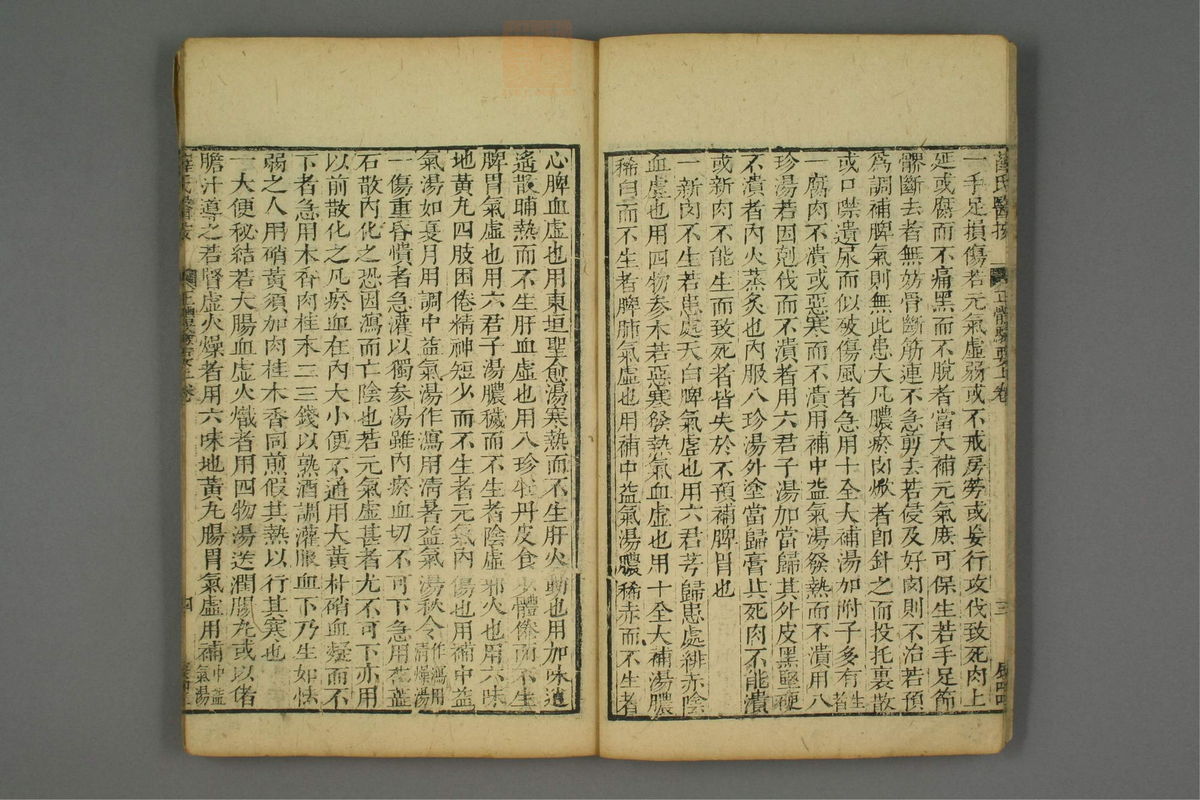 薛氏醫按
正體類要上卷
三
一手足損傷若元氣虛弱或不戒房勞或妄行攻伐致死肉上
延或腐而不痛黑而不脫者當大補元氣庶可保生若手足節
髎斷去者無妨骨斷筋連不急剪去若侵及好肉則不治若預
爲調補脾氣則無此患大凡膿瘀肉焮者卽針之而投托裏散
或口噤遺尿而似破傷風者急用十全大補湯加附子多有生者
一腐肉不潰或惡寒而不潰用補中益氣湯發熱而不潰用八
珍湯若因剋伐而不潰者用六君子湯加當歸其外皮黑堅硬
不潰者內火蒸炙也內服八珍湯外塗當歸膏其死肉不能潰
或新肉不能生而致死者皆失於不預補脾胃也
一新肉不生若患處夭白脾氣虛也用六君芎歸患處緋赤陰
血虛也用四物參朮若惡寒發熱氣血虛也用十全大補湯膿
稀白而不生者脾肺氣虛也用補中益氣湯膿稀赤而不生者
心脾血虛也用東垣聖愈湯寒熱而不生肝火動也用加味逍
遙散晡熱而不生肝血虛也用八珍牡丹皮食少體倦而不生
脾胃氣虛也用六君子湯膿穢而不生者陰虛邪火也用六味
地黃丸四肢困倦精神短少而不生者元氣內傷也用補中益
氣湯如夏月用調中益氣湯作瀉用清暑益氣湯秋令作瀉用清燥湯
一傷重昏憒者急灌以獨參湯雖內瘀血切不可下急用花蕊
石散內化之恐因瀉而亡陰也若元氣虛甚者尤不可下亦用
以前散化之凡瘀血在內大小便不通用大黃朴硝血凝而不
下者急用木香肉桂末二三錢以熟酒調灌服血下乃生如怯
弱之人用硝黃須加肉桂木香同煎假其熱以行其寒也
一大便秘結若大腸血虛火熾者用四物湯送潤腸丸或以猪
膽汁導之若腎虛火燥者用六味地黃丸腸胃氣虛用補中益氣湯
薛氏醫按
正體類要上卷
四